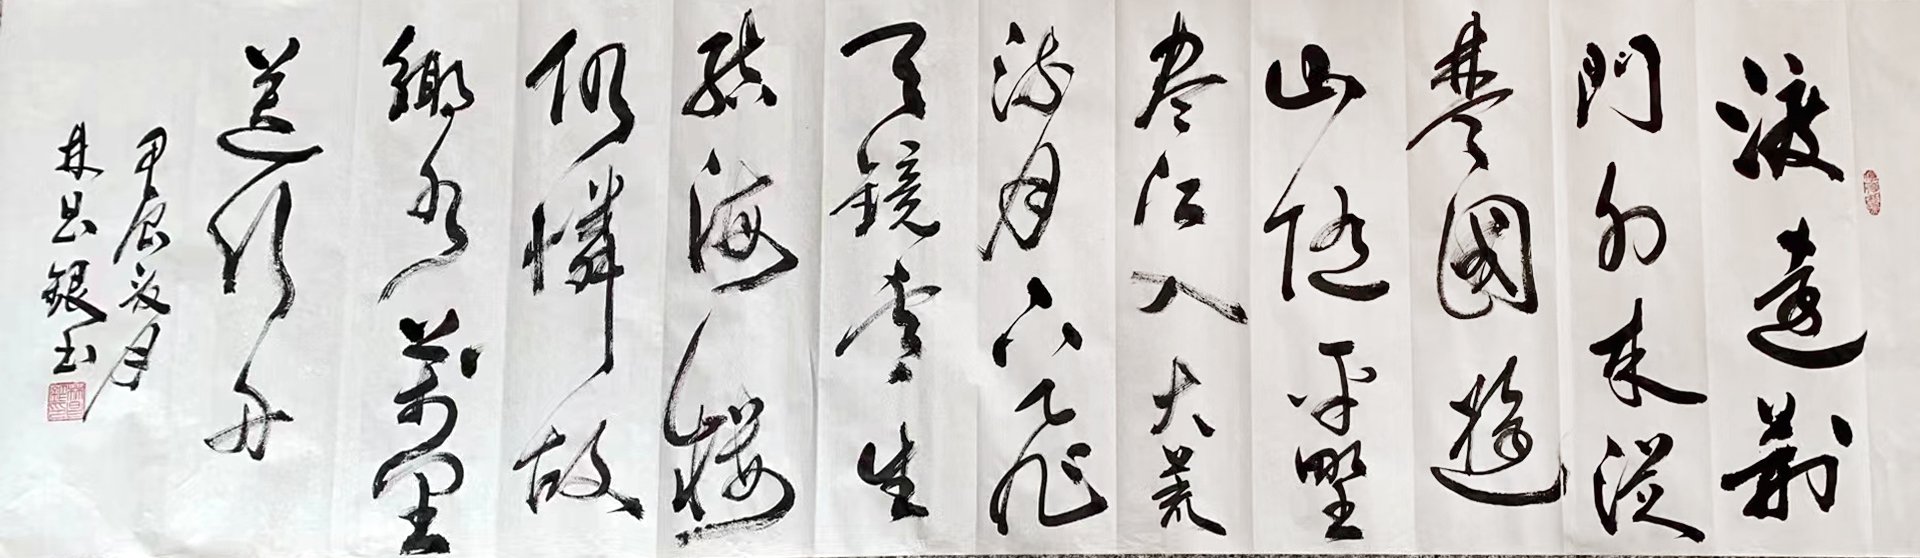 渡遠荊
門外来從
楚國遊
山随平野
盡江入大荒
流月下飛
天鏡雲生
結海樓
仍憐故
鄉水萬里
送行舟
甲辰夏月
林銀玉